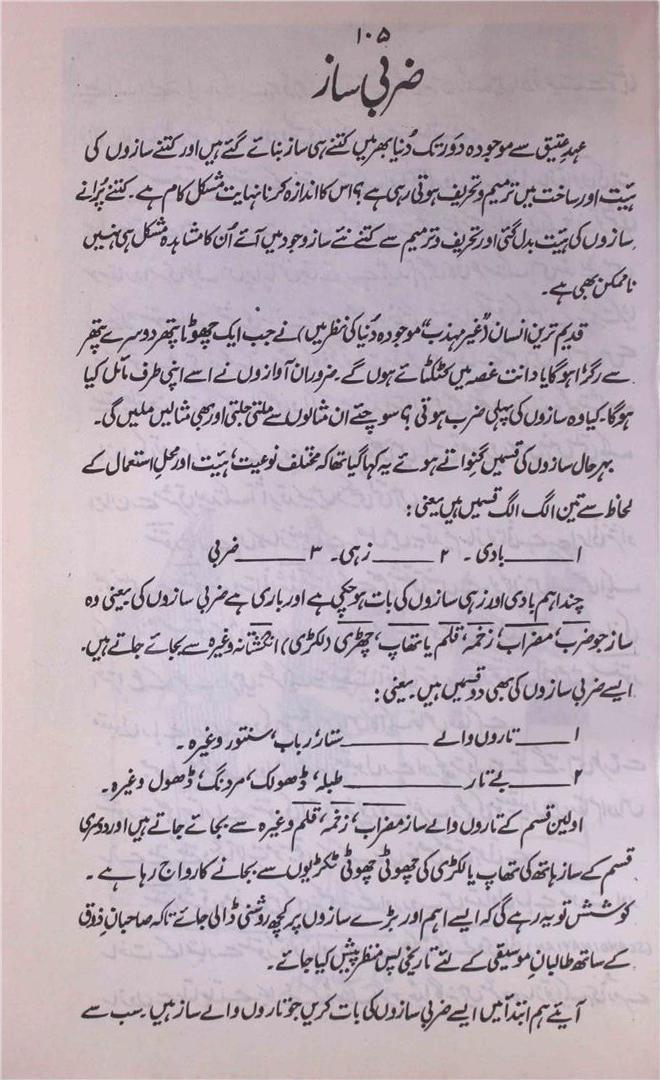 ۱۰۵
ضربی ساز
عہدِ عتیق سے موجودہ دَور تک دُنیا بھر میں کتنے ہی ساز بنائے گئے ہیں اور کتنے سازوں کی
ہیئت اور ساخت میں ترمیم و تحریف ہوتی رہی ہے؟ اس کا اندازہ کرنا نہایت مشکل کام ہے۔ کتنے پُرانے
سازوں کی ہیئت بدل گئی اور تحریف و ترمیم سے کتنے نئے ساز وجود میں آئے اُن کا مشاہدہ مشکل ہی نہیں
ناممکن بھی ہے۔
قدیم ترین انسان (”غیر مہذب“ موجودہ دُنیا کی نظر میں) نے جب ایک چھوٹا پتھر دوسرے پتھر
سے رگڑا ہوگا یا دانت غصہ میں کٹکٹائے ہوں گے۔ ضرور ان آوازوں نے اسے اپنی طرف مائل کیا
ہوگا۔ کیا وہ سازوں کی پہلی ضرب ہوتی؟ سوچئے ان مثالوں سے ملتی جلتی اور بھی مثالیں ملیں گی۔
بہر حال سازوں کی قسمیں گنواتے ہوئے یہ کہا گیا تھا کہ مختلف نوعیت، ہیئت اور محلِ استعمال کے
لحاظ سے تین الگ الگ قسمیں ہیں یعنی:
۱ــــــــ بادی۔ ۲ــــــــ زہی۔ ۳ــــــــ ضربی
چند اہم بادی اور زہی سازوں کی بات ہو چکی ہے اور باری ہے ضربی سازوں کی یعنی وہ
ساز جو ضرب، مضراب، زخمہ، قلم یا تھاپ، چھڑی (لکڑی) انگشتانہ وغیرہ سے بجائے جاتے ہیں۔
ایسے ضربی سازوں کی بھی دو قسمیں ہیں یعنی:
۱ــــــــ تاروں والے ــــــــ ستار، رباب، سنتور وغیرہ۔
۲ــــــــ بے تار ــــــــ طبلہ، ڈھولک، مردنگ، ڈھول وغیرہ۔
اولین قسم کے تاروں والے ساز مضراب، زخمہ، قلم وغیرہ سے بجائے جاتے ہیں اور دوسری
قسم کے ساز ہاتھ کی تھاپ یا لکڑی کی چھوٹی چھوٹی ٹکڑیوں سے بجانے کا رواج رہا ہے۔
کوشش تو یہ رہے گی کہ ایسے اہم اور بڑے سازوں پر کچھ روشنی ڈالی جائے تاکہ صاحبانِ ذوق
کے ساتھ طالبانِ موسیقی کے لئے تاریخی پس منظر پیش کیا جائے۔
آیئے ہم ابتدا میں ایسے ضربی سازوں کی بات کریں جو تاروں والے ساز ہیں۔ سب سے